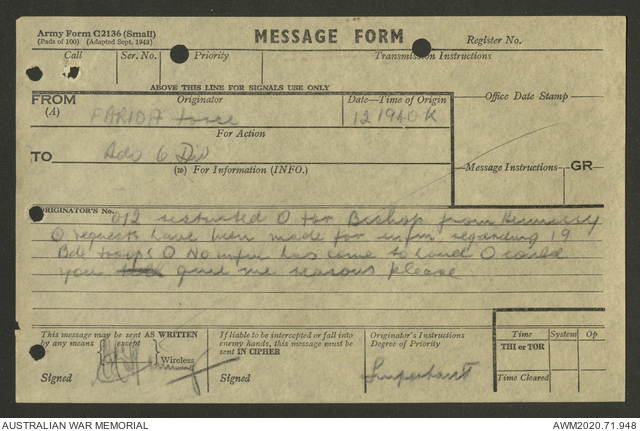 Army Form C2136 (Small)
(Pads of 100) (Adapted Sept. 1943)
MESSAGE FORM
Register No.
Call
Ser. No.
Priority
Transmission Instructions
ABOVE THIS LINE FOR SIGNALS USE ONLY
FROM
(A)
Originator
Date—Time of Origin
Office Date Stamp
FARIDA Force
121940K
For Action
TO
Adv 6 Div
(w) For Information (INFO.)
Message Instructions
GR
ORIGINATOR'S No.
012 restricted O for Bishop from Hennessy
O requests have been made for infm regarding 19
Bde troops O No infm has come to hand O could
you give me reasons please
This message may be sent AS WRITTEN
by any means
except
Wireless
Signed
If liable to be intercepted or fall into
enemy hands, this message must be
sent IN CIPHER
Signed
Originator's Instructions
Degree of Priority
Important
Time
System
Op
THI or TOR
Time Cleared
AUSTRALIAN WAR MEMORIAL
AWM2020.71.948